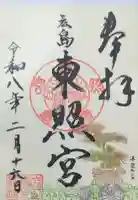 奉拝
広島
東照宮
令和八年二月十六日